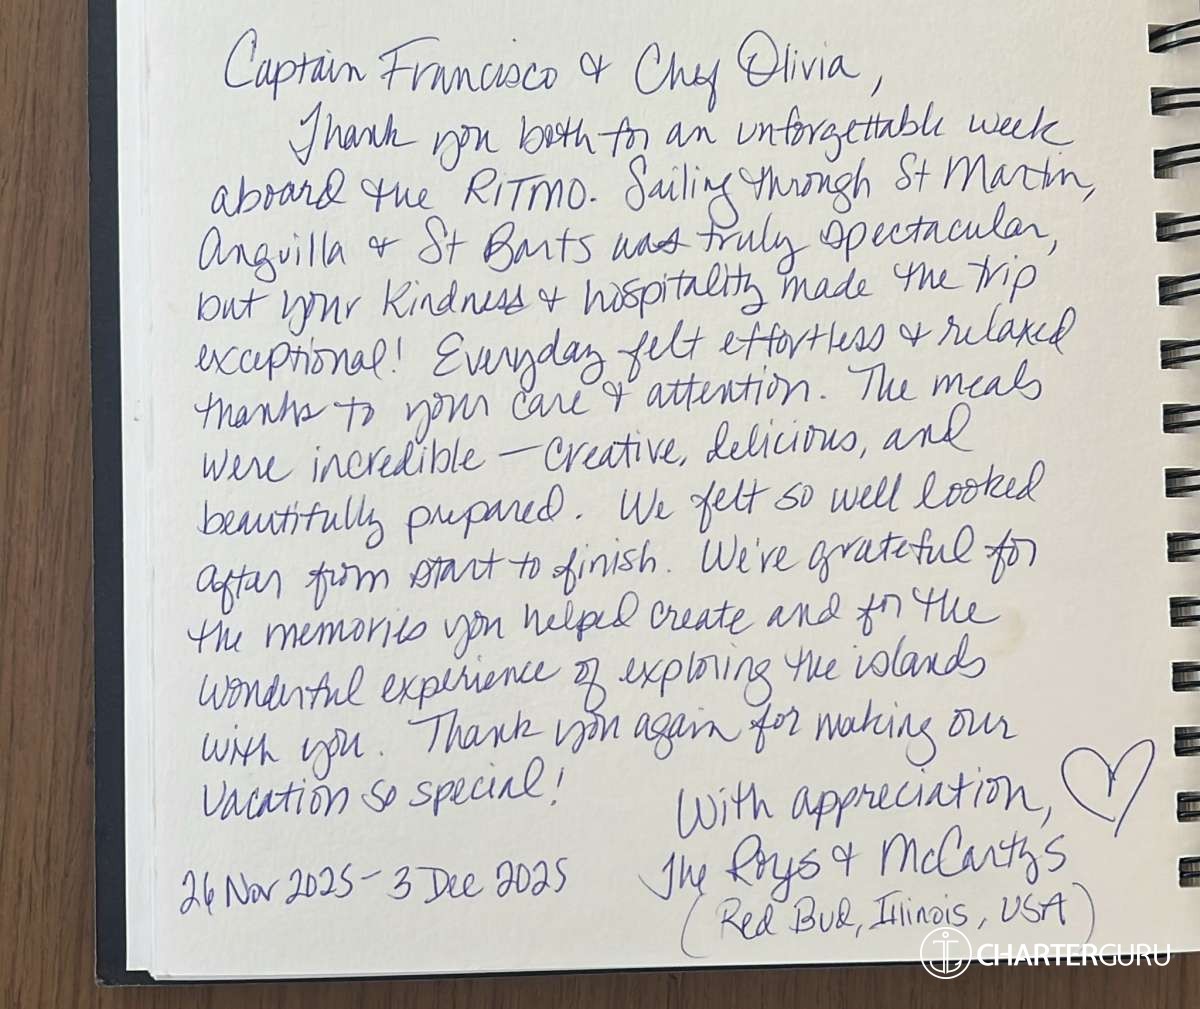 Captain Francisco & Chef Olivia,
Thank you both for an unforgettable week
aboard the RITMO. Sailing through St Martin,
Anguilla & St Barts was truly spectacular,
but your kindness & hospitality made the trip
exceptional! Everyday felt effortless & relaxed
thanks to your care & attention. The meals
were incredible – creative, delicious, and
beautifully prepared. We felt so well looked
after from start to finish. We're grateful for
the memories you helped create and for the
wonderful experience of exploring the islands
with you. Thank you again for making our
vacation so special!
With appreciation,
The Roys & McCartys
26 Nov 2025 - 3 Dec 2025
(Red Bud, Illinois, USA)
CHARTERGURU